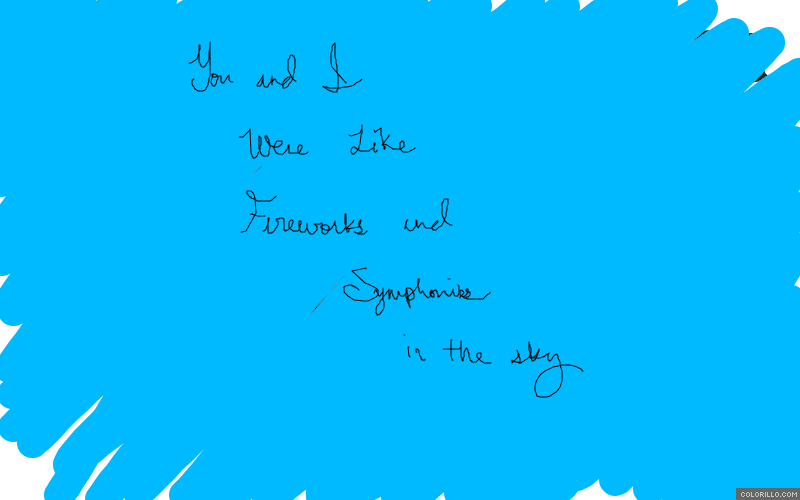 You and I
Were Like
Fireworks and
Symphonies
in the sky
COLORILLO.COM